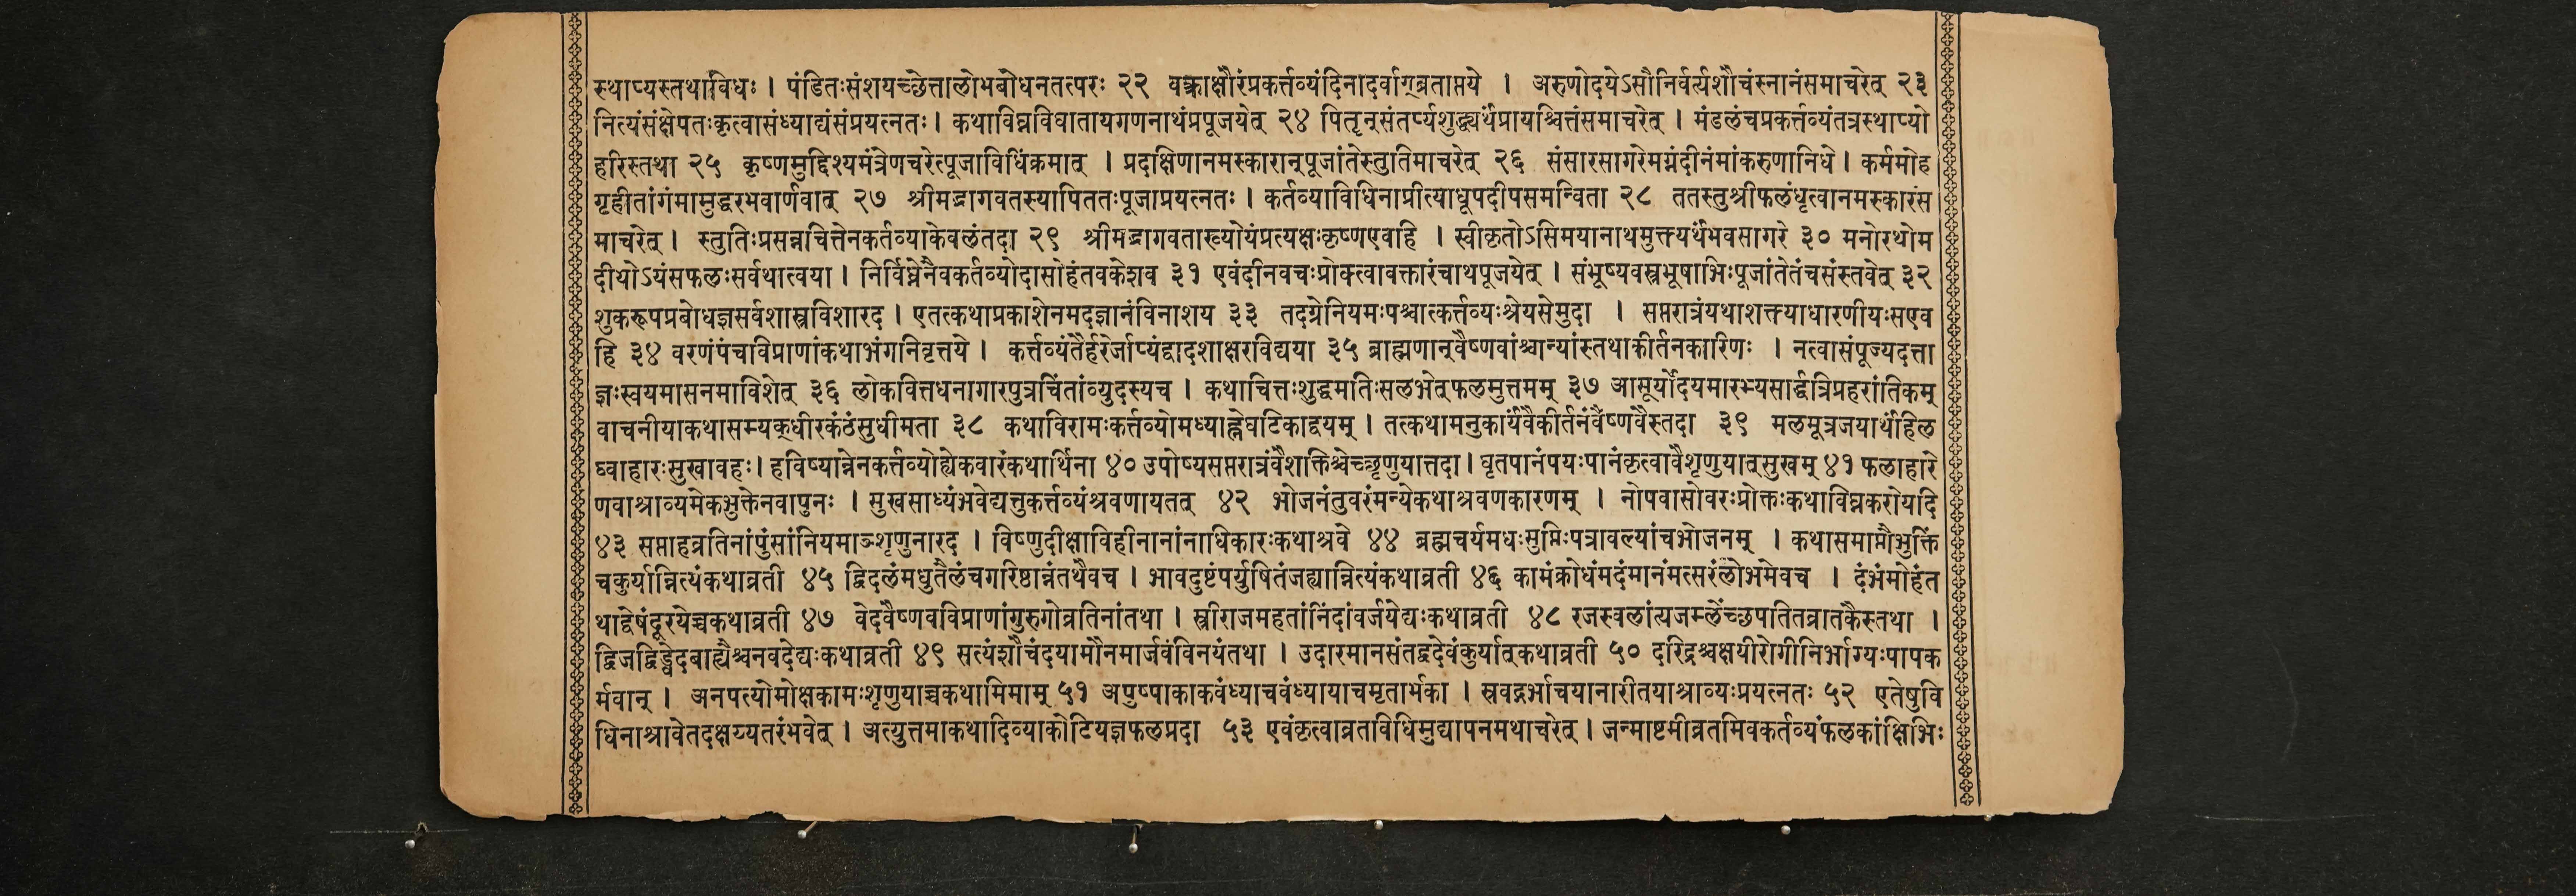 स्थाप्यस्तथाविधः । पंडितःसंशयच्छेत्तालोभबोधनतत्परः २२ वक्राक्षौरंप्रकर्त्तव्यंदिनादर्वाग्व्रताप्तये । अरुणोदयेऽसौनिर्वर्त्यशौचंस्नानंसमाचरेत् २३
नित्यंसंक्षेपतःकृत्वासंध्याद्यंसंप्रयत्नतः । कथाविघ्नविघातायगणनाथंप्रपूजयेत् २४ पितॄन्संतर्प्यशुद्ध्यर्थंप्रायश्चित्तंसमाचरेत् । मंडलंचप्रकर्त्तव्यंतत्रस्थाप्यो
हरिस्तथा २५ कृष्णमुद्दिश्यमंत्रेणचरेत्पूजाविधिंक्रमात् । प्रदक्षिणानमस्कारान्पूजांतेस्तुतिमाचरेत् २६ संसारसागरेमग्नंदीनंमांकरुणानिधे । कर्ममोह
गृहीतांगंमामुद्धरभवार्णवात् २७ श्रीमद्भागवतस्यापिततःपूजाप्रयत्नतः । कर्तव्याविधिनाप्रीत्याधूपदीपसमन्विता २८ ततस्तुश्रीफलंधृत्वानमस्कारंस
माचरेत् । स्तुतिःप्रसन्नचित्तेनकर्तव्याकेवलंतदा २९ श्रीमद्भागवताख्योयंप्रत्यक्षःकृष्णएवहि । स्वीकृतोऽसिमयानाथमुक्त्यर्थंभवसागरे ३० मनोरथोम
दीयोऽयंसफलःसर्वथात्वया । निर्विघ्नेनैवकर्तव्योदासोहंतवकेशव ३१ एवंदीनवचःप्रोक्त्वावक्तारंचाथपूजयेत् । संभूष्यवस्त्रभूषाभिःपूजांतेतंचसंस्तवेत् ३२
शुकरूपप्रबोधज्ञसर्वशास्त्रविशारद । एतत्कथाप्रकाशेनमदज्ञानंविनाशय ३३ तदग्रेनियमःपश्चात्कर्त्तव्यःश्रेयसेमुदा । सप्तरात्रंयथाशक्त्याधारणीयःसएव
हि ३४ वरणंपंचविप्राणांकथाभंगनिवृत्तये । कर्त्तव्यंतैर्हरेर्जाप्यंद्वादशाक्षरविद्यया ३५ ब्राह्मणान्वैष्णवांश्चान्यांस्तथाकीर्तनकारिणः । नत्वासंपूज्यदत्ता
ज्ञःस्वयमासनमाविशेत् ३६ लोकवित्तधनागारपुत्रचिंतांव्युदस्यच । कथाचित्तःशुद्धमतिःसलभेत्फलमुत्तमम् ३७ आसूर्योदयमारभ्यसार्द्धत्रिप्रहरांतिकम्
वाचनीयाकथासम्यक्धीरकंठंसुधीमता ३८ कथाविरामःकर्त्तव्योमध्याह्नेघटिकाद्वयम् । तत्कथामनुकार्यंवैकीर्तनंवैष्णवैस्तदा ३९ मलमूत्रजयार्थंहिल
घ्वाहारःसुखावहः । हविष्यान्नेनकर्त्तव्योह्येकवारंकथार्थिना ४० उपोष्यसप्तरात्रंवैशक्तिश्चेच्छृणुयात्तदा । घृतपानंपयःपानंकृत्वावैशृणुयात्सुखम् ४१ फलाहारे
णवाश्राव्यमेकभुक्तेनवापुनः । सुखसाध्यंभवेद्यत्तुकर्त्तव्यंश्रवणायतत् ४२ भोजनंतुवरंमन्येकथाश्रवणकारणम् । नोपवासोवरःप्रोक्तःकथाविघ्नकरोयदि
४३ सप्ताहव्रतिनांपुंसांनियमाञ्शृणुनारद । विष्णुदीक्षाविहीनानांनाधिकारःकथाश्रवे ४४ ब्रह्मचर्यमधःसुप्तिःपत्रावल्यांचभोजनम् । कथासमाप्तौभुक्तिं
चकुर्यान्नित्यंकथाव्रती ४५ द्विदलंमधुतैलंचगरिष्ठान्नंतथैवच । भावदुष्टंपर्युषितंजह्यान्नित्यंकथाव्रती ४६ कामंक्रोधंमदंमानंमत्सरंलोभमेवच । दंभंमोहंत
थाद्वेषंदूरयेच्चकथाव्रती ४७ वेदवैष्णवविप्राणांगुरुगोव्रतिनांतथा । स्त्रीराजमहतांनिंदांवर्जयेद्यःकथाव्रती ४८ रजस्वलांत्यजम्लेच्छपतितव्रातकैस्तथा ।
द्विजद्विड्वेदबाह्यैश्चनवदेद्यःकथाव्रती ४९ सत्यंशौचंदयामौनमार्जवंविनयंतथा । उदारमानसंतद्वदेवंकुर्यात्कथाव्रती ५० दरिद्रश्चक्षयीरोगीनिर्भाग्यःपापक
र्मवान् । अनपत्योमोक्षकामःशृणुयाच्चकथामिमाम् ५१ अपुष्पाकाकवंध्याचवंध्यायाचमृतार्भका । स्रवद्गर्भाचयानारीतयाश्राव्यःप्रयत्नतः ५२ एतेषुवि
धिनाश्रावेतदक्षय्यतरंभवेत् । अत्युत्तमाकथादिव्याकोटियज्ञफलप्रदा ५३ एवंकृत्वाव्रतविधिमुद्यापनमथाचरेत् । जन्माष्टमीव्रतमिवकर्तव्यंफलकांक्षिभिः